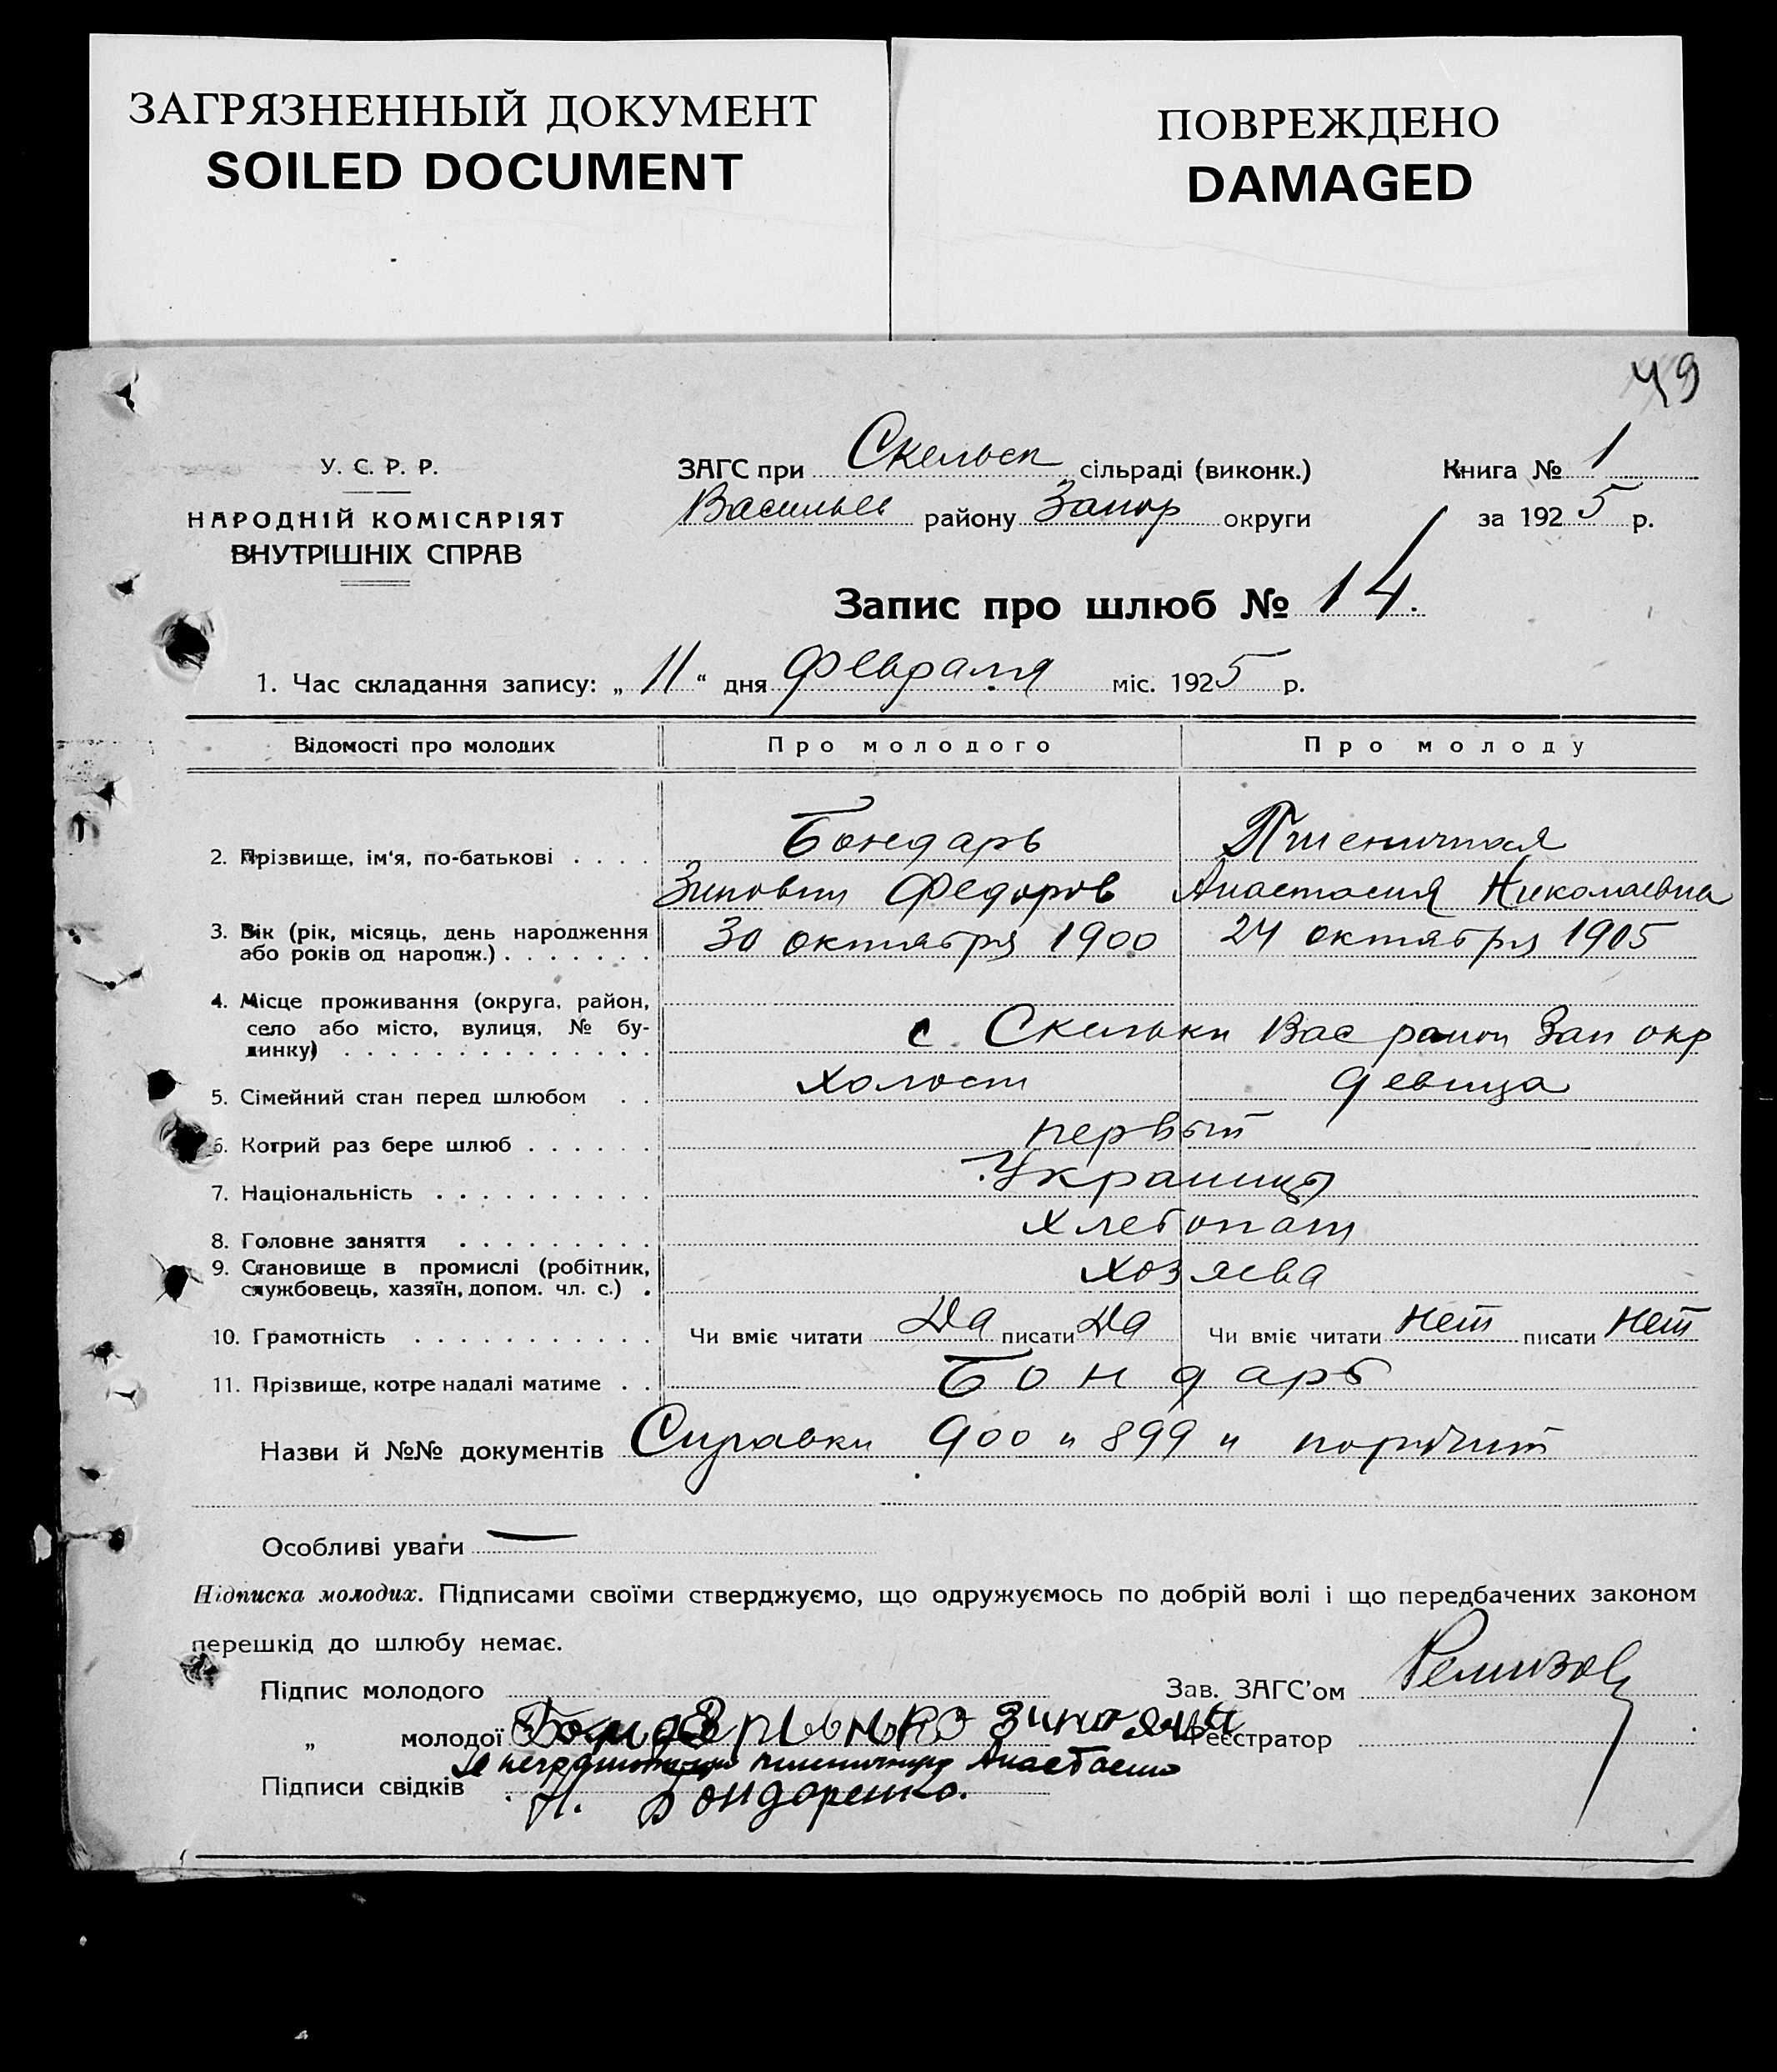 ЗАГРЯЗНЕННЫЙ ДОКУМЕНТ
SOILED DOCUMENT
ПОВРЕЖДЕНО
DAMAGED
49
У. С. Р. Р.
НАРОДНІЙ КОМІСАРІЯТ
ВНУТРІШНІХ СПРАВ
ЗАГС при Скельск сільраді (виконк.) Книга № 1
Васильев району Запор округи за 1925 р.
Запис про шлюб № 14.
1. Час складання запису: „11“ дня Февраля міс. 1925 р.
Відомості про молодих Про молодого Про молоду
2. Прізвище, ім'я, по-батькові . . . . Бондарь Пшеничная
Зиновий Федоров Анастасия Николаевна
3. Вік (рік, місяць, день народження 30 октября 1900 24 октября 1905
або років од народж.) . . . . . . .
4. Місце проживання (округа, район,
село або місто, вулиця, № бу- с. Скельки Вас район Зап окр
динку) . . . . . . . . . . . . . .
5. Сімейний стан перед шлюбом . . холост девица
6. Котрий раз бере шлюб . . . . . . первый
7. Національність . . . . . . . . . . Украинцы
8. Головне заняття . . . . . . . . . Хлебопаш
9. Становище в промислі (робітник,
службовець, хазяїн, допом. чл. с.) . хозяева
10. Грамотність . . . . . . . . . . . Чи вміє читати Да писати Да Чи вміє читати нет писати нет
11. Прізвище, котре надалі матиме . . Бондарь
Назви й №№ документів Справки 900 и 899 и
Особливі уваги —
Підписка молодих. Підписами своїми стверджуємо, що одружуємось по добрій волі і що передбачених законом
перешкід до шлюбу немає.
Підпис молодого Зав. ЗАГС'ом Ремизов
„ молодої Реєстратор
за неграмотную Пшеничную Анастасию
Підписи свідків Н. Бондаренко.